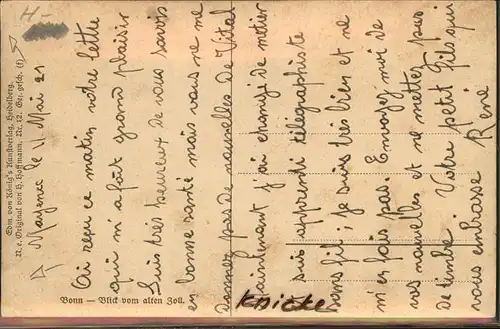 H-
Edm. von König's Kunstverlag, Heidelberg.
N. e. Original von H. Hoffmann. Nr. 12. Ges. gesch. (f)
Mayence le 11 Mai 21
Ai reçu ce matin votre lettre
qui m'a fait grand plaisir
Suis très heureux de vous savoir
en bonne santé mais vous ne me
donnez pas de nouvelles de Vital
Maintenant j'ai changé de métier
suis apprenti télégraphiste
sans fil; Je suis très bien et ne
m'en fais pas. Envoyez moi de
vos nouvelles et ne mettez pas
de timbre. Votre petit fils qui
vous embrasse René
Bonn — Blick vom alten Zoll.
Knicke